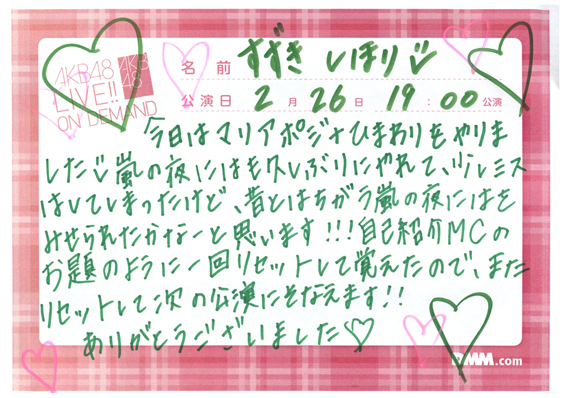 AKB48
LIVE!!
ON DEMAND
AKB
48
名前 すずき しほり
公演日 2月26日 19:00公演
今日はマリアポジとひまわりをやりま
した 嵐の夜にはも久しぶりにやれて、少しミス
はしてしまったけど、昔とはちがう嵐の夜にはを
みせられたかなーと思います!!!自己紹介MCの
お題のように一回リセットして覚えたので、また
リセットして次の公演にそなえます!!
ありがとうございました♡
DMM.com